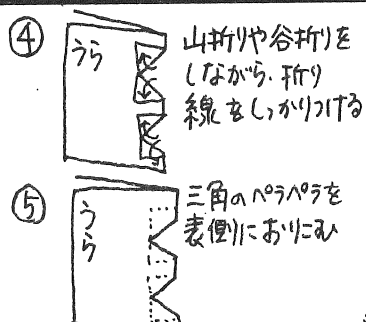 ④
うら
山折りや谷折りを
しながら、折り
線をしっかりつける
⑤
うら
三角のペラペラを
表側におりこむ